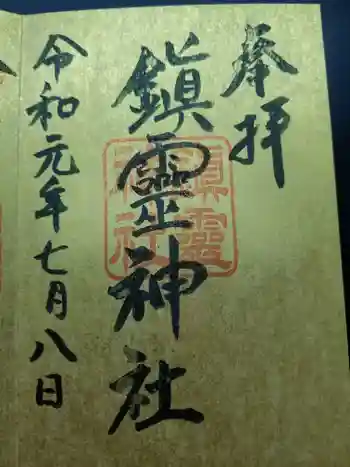 奉拝
鎮靈神社
令和元年七月八日
鎮靈
神社